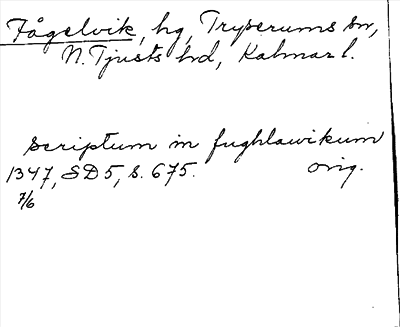 Fågelvik, hg, Tryserums sn,
N. Tjusts hd, Kalmar l.
scriptum in fughlawikum
1347, SD 5, s. 675. orig.
7/6